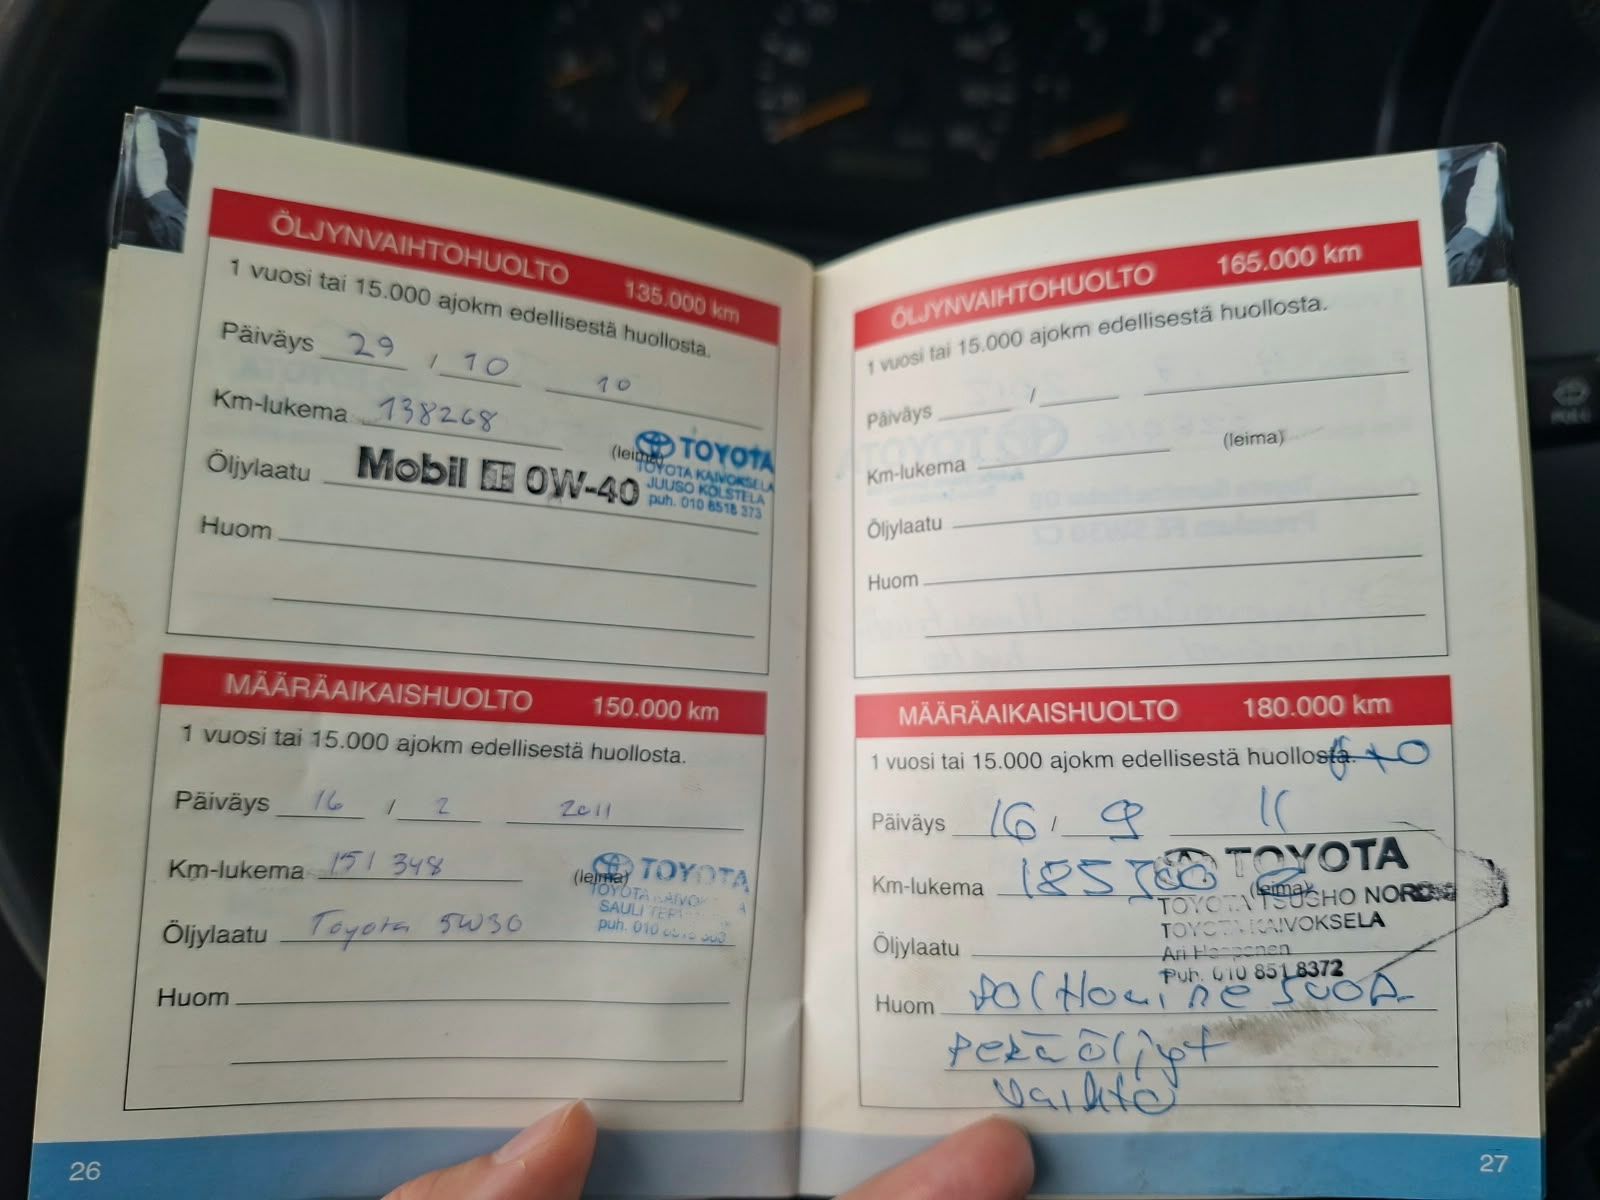 ÖLJYNVAIHTOHUOLTO 135.000 km
1 vuosi tai 15.000 ajokm edellisestä huollosta.
Päiväys 29 / 10 10
Km-lukema 138268
(leima)
TOYOTA
TOYOTA KAIVOKSELA
JUUSO KOLSTELA
puh. 010 8518 373
Öljylaatu Mobil 1 0W-40
Huom
MÄÄRÄAIKAISHUOLTO 150.000 km
1 vuosi tai 15.000 ajokm edellisestä huollosta.
Päiväys 16 / 2 2011
Km-lukema 151 348
(leima)
TOYOTA
TOYOTA KAIVOKSELA
SAULI
puh. 010
Öljylaatu Toyota 5W30
Huom
26
ÖLJYNVAIHTOHUOLTO 165.000 km
1 vuosi tai 15.000 ajokm edellisestä huollosta.
Päiväys /
Km-lukema
(leima)
Öljylaatu
Huom
MÄÄRÄAIKAISHUOLTO 180.000 km
1 vuosi tai 15.000 ajokm edellisestä huollosta.
Päiväys 16 / 9 11
Km-lukema
(leima)
TOYOTA
TOYOTA TSUSHO NORDIC
TOYOTA KAIVOKSELA
Ari
Puh. 010 851 8372
Öljylaatu
Huom
perä öljyt
vaihto
27
POLL